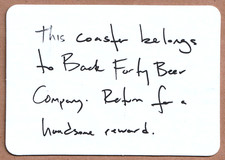 This coaster belongs
to Back Forty Beer
Company. Return for a
handsome reward.